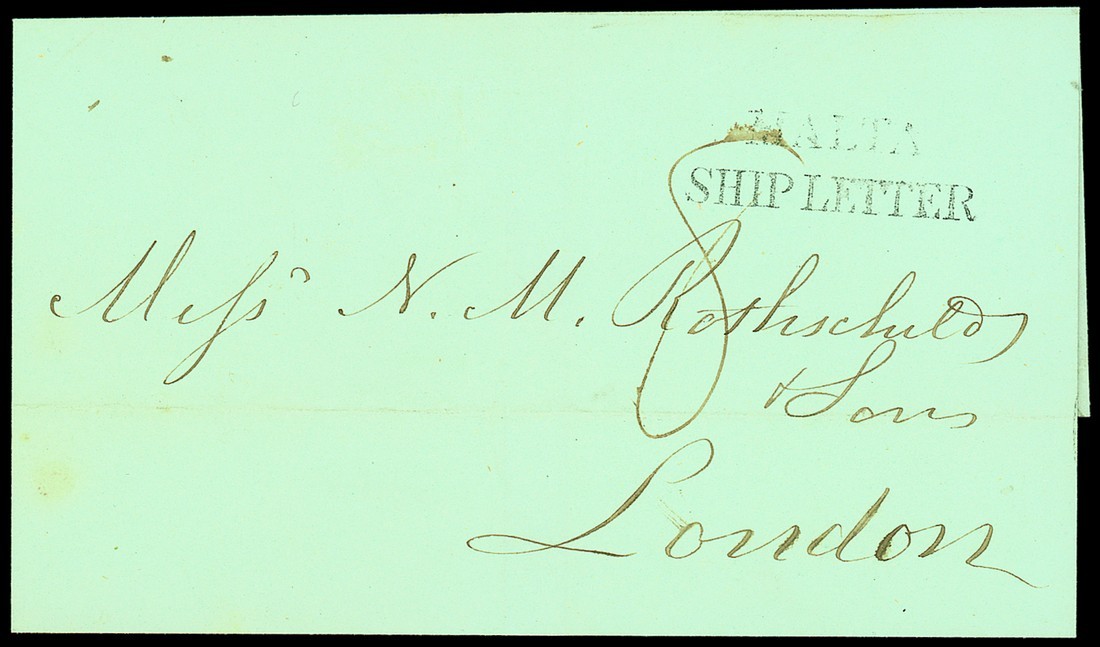 MALTA
SHIP LETTER
8
Messrs N. M. Rothschilds
& Sons
London